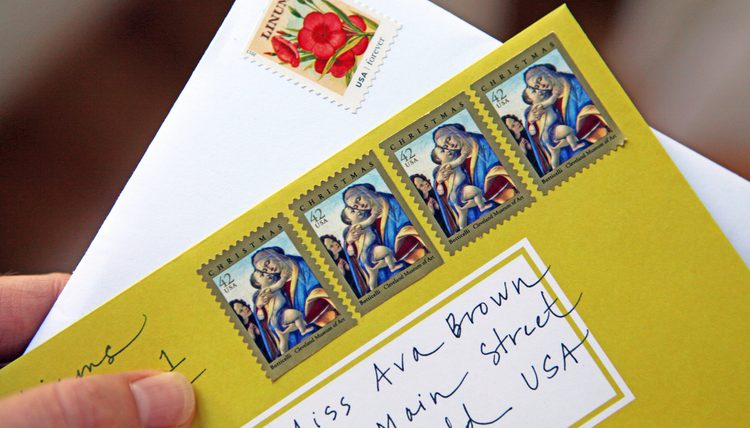 LINUM
USA | forever
CHRISTMAS
42
USA
Botticelli Cleveland Museum of Art
CHRISTMAS
42
USA
Botticelli Cleveland Museum of Art
CHRISTMAS
42
USA
Botticelli Cleveland Museum of Art
CHRISTMAS
42
USA
Botticelli Cleveland Museum of Art
1
Miss Ava Brown
Main Street
USA